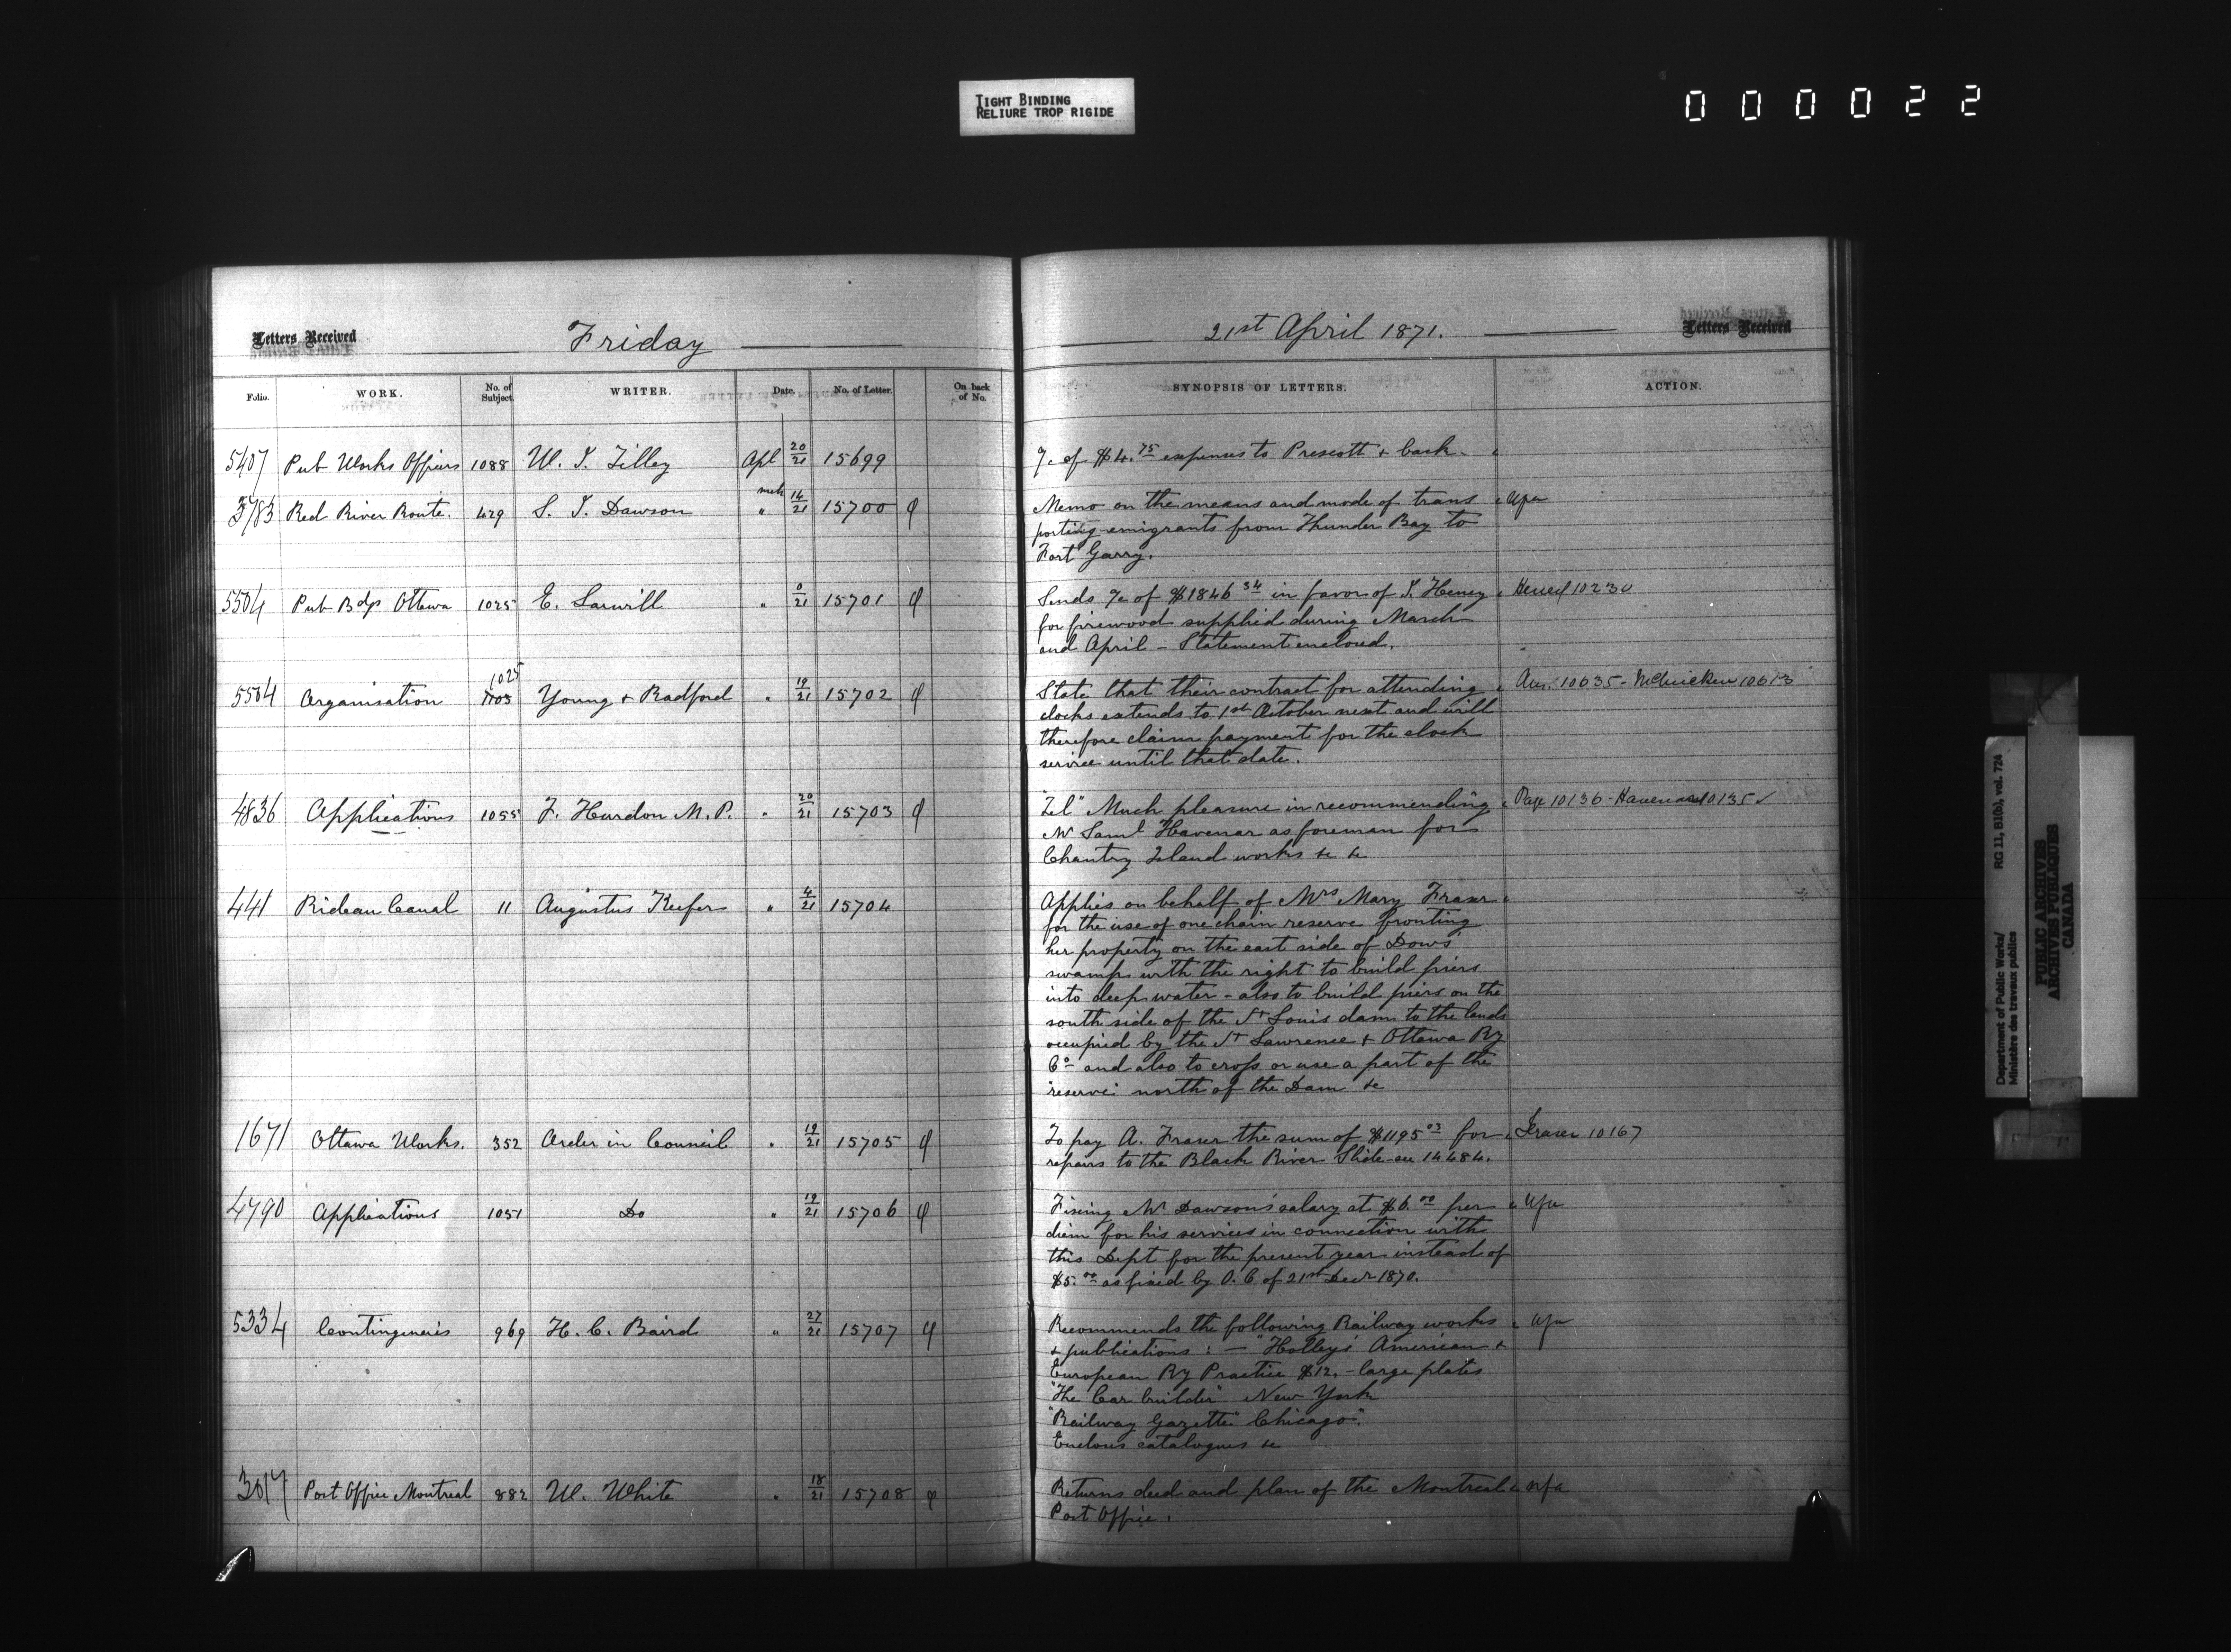 TIGHT BINDING
RELIURE TROP RIGIDE
000022
Letters Received
Friday
21st April 1871.
Letters Received
Folio. WORK. No. of Subject. WRITER. Date. No. of Letter. On back of No. SYNOPSIS OF LETTERS. ACTION.
5407 Pub Works Officers 1088 W. I. Tilley Apl 20/21 15699 %c of $4.75 expenses to Prescott & back.
3783 Red River Route. 429 S. J. Dawson mch " 14/21 15700 φ Memo on the means and mode of trans
porting emigrants from Thunder Bay to
Fort Garry.
5504 Pub Bdgs Ottawa 1025 E. Larwill " 0/21 15701 φ Sends %c of $1846 34 in favor of J. Heney 10230
for firewood supplied during March
and April - Statement enclosed.
5504 Organisation 1025 1103 Young & Radford " 19/21 15702 φ State that their contract for attending Ans. 10635 - McCuicken 10613
clocks extends to 1st October next and will
therefore claim payment for the clock
service until that date.
4836 Applications 1055 F. Hurdon M.P. " 20/21 15703 φ "Tel" Much pleasure in recommending Page 10136 - 10135 ✓
Mr Saml Havenar as foreman for
Chantry Island works &c &c
441 Rideau Canal 11 Augustus Keefer " 4/21 15704 Applies on behalf of Mrs Mary Fraser
for the use of one chain reserve fronting
her property on the east side of Dows'
swamp with the right to build piers
into deep water - also to build piers on the
south side of the St Louis dam to the lands
occupied by the St Lawrence & Ottawa Ry
Co and also to cross or use a part of the
reserve north of the Dam &c
1671 Ottawa Works. 352 Order in Council " 19/21 15705 φ To pay A. Fraser the sum of $1195 03 for Fraser 10167
repairs to the Black River Slide - see 14484.
4790 Applications 1051 Do " 19/21 15706 φ Fixing Mr Dawson's salary at $6.00 per
diem for his services in connection with
this Dept for the present year instead of
$5.00 as fixed by O. C of 21st Decr 1870.
5334 Contingencies 969 H. C. Baird " 27/21 15707 φ Recommends the following Railway works
& publications : - "Holley's American &
European Ry Practice $12. - large plates
"The Car builder" New York
"Railway Gazette" Chicago".
Encloses catalogues &c
3017 Post Office Montreal 882 W. White " 18/21 15708 φ Returns deed and plan of the Montreal
Post Office.
Department of Public Works/
Ministère des travaux publics
RG 11, B1(b), vol. 724
PUBLIC ARCHIVES
ARCHIVES PUBLIQUES
CANADA